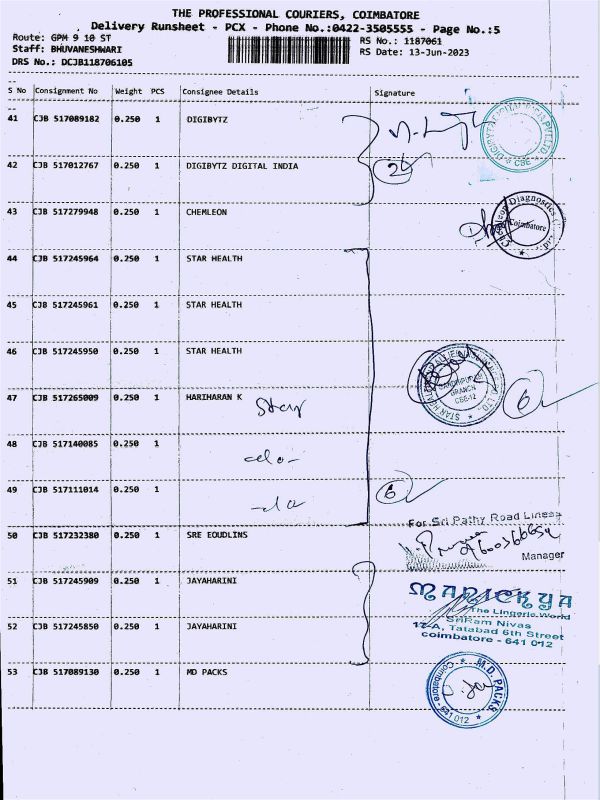 THE PROFESSIONAL COURIERS, COIMBATORE
Delivery Runsheet - PCX - Phone No.:0422-3505555 - Page No.:5
Route: GPM 9 10 ST
RS No.: 1187061
Staff: BHUVANESHWARI
RS Date: 13-Jun-2023
DRS No.: DCJB118706105
S No Consignment No Weight PCS Consignee Details Signature
41 CJB 517089182 0.250 1 DIGIBYTZ
42 CJB 517012767 0.250 1 DIGIBYTZ DIGITAL INDIA 2
CBE
43 CJB 517279948 0.250 1 CHEMLEON
Diagnostics
Coimbatore
44 CJB 517245964 0.250 1 STAR HEALTH
45 CJB 517245961 0.250 1 STAR HEALTH
46 CJB 517245950 0.250 1 STAR HEALTH
BRANCH
CBE-12
47 CJB 517265009 0.250 1 HARIHARAN K Star 6
48 CJB 517140085 0.250 1 -do-
49 CJB 517111014 0.250 1 -do 6
For Sri Pathy Road Liness
50 CJB 517232380 0.250 1 SRE EOUDLINS
Manager
51 CJB 517245909 0.250 1 JAYAHARINI
MANICKYA
The Lingerie World
SriRam Nivas
52 CJB 517245850 0.250 1 JAYAHARINI
12-A, Tatabad 6th Street
coimbatore - 641 012
53 CJB 517089130 0.250 1 MD PACKS
M.D. PACKS
Coimbatore - 641 012